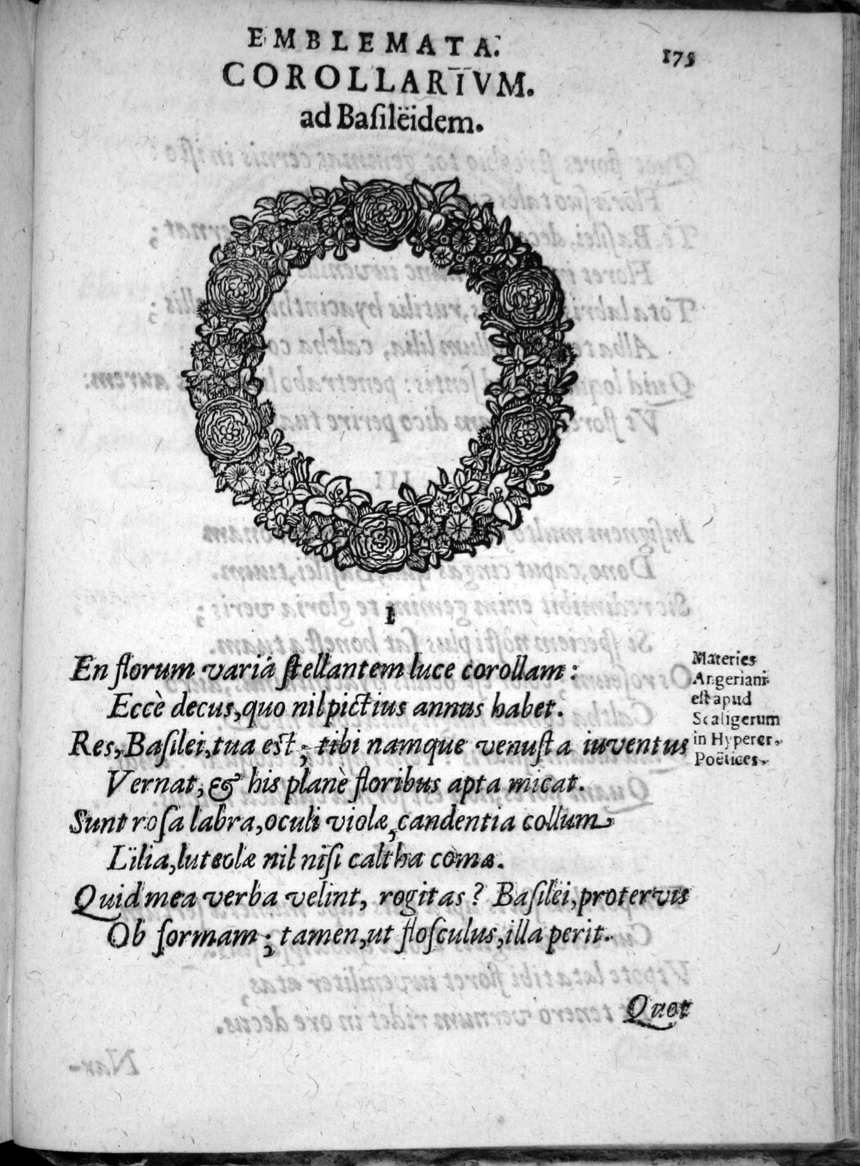 EMBLEMATA.
175
COROLLARIVM.
ad Basilëidem.
I
En florum variâ stellantem luce corollam:
Eccè decus, quo nil pictius annus habet.
Res, Basilei, tua est; tibi namque venusta iuventus
Vernat, & his planè floribus apta micat.
Sunt rosa labra, oculi violæ, candentia collum
Lilia, luteolæ nil nisi caltha comæ.
Quid mea verba velint, rogitas? Basilëi, protervis
Ob formam; tamen, ut flosculus, illa perit.
Materies
Angeriani
est apud
Scaligerum
in Hypercr.
Poëtices.
Quot